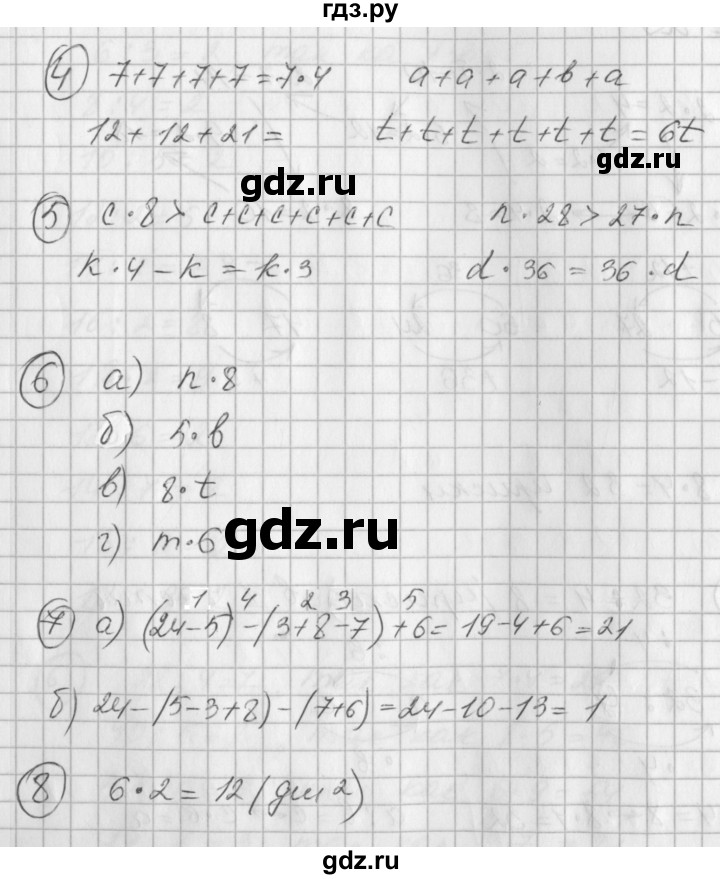 гдз.ру
4 7+7+7+7=7·4 a+a+a+b+a
12+12+21= t+t+t+t+t+t=6t
gdz.ru
5 c·8>c+c+c+c+c+c n·28>27·n
k·4-k=k·3 d·36=36·d
6 а) n·8
б) 5·b
в) 8·t
г) m·6
gdz.ru
1 4 2 3 5
7 а) (24-5)-(3+8-7)+6=19-4+6=21
б) 24-(5-3+8)-(7+6)=24-10-13=1
8 6·2=12(дм²)
gdz.ru